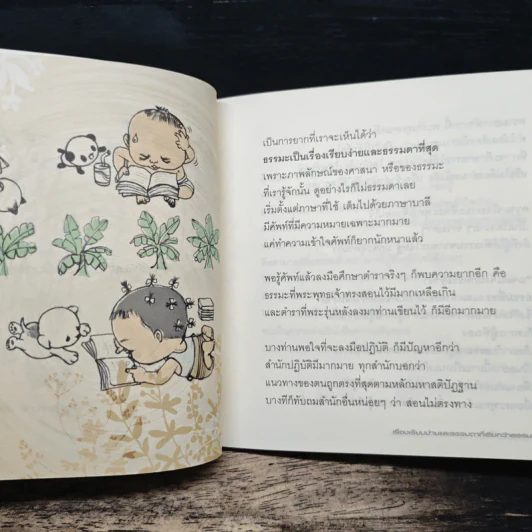 เป็นการยากที่เราจะเห็นได้ว่า
ธรรมะเป็นเรื่องเรียบง่ายและธรรมดาที่สุด
เพราะภาพลักษณ์ของศาสนา หรือของธรรมะ
ที่เรารู้จักนั้น ดูอย่างไรก็ไม่ธรรมดาเลย
เริ่มตั้งแต่ภาษาที่ใช้ เต็มไปด้วยภาษาบาลี
มีศัพท์ที่มีความหมายเฉพาะมากมาย
แค่ทำความเข้าใจศัพท์ก็ยากนักหนาแล้ว
พอรู้ศัพท์แล้วลงมือศึกษาตำราจริงๆ ก็พบความยากอีก คือ
ธรรมะที่พระพุทธเจ้าทรงสอนไว้มีมากเหลือเกิน
และตำราที่พระรุ่นหลังลงมาท่านเขียนไว้ ก็มีอีกมากมาย
บางท่านพอใจที่จะลงมือปฏิบัติ ก็มีปัญหาอีกว่า
สำนักปฏิบัติมีมากมาย ทุกสำนักบอกว่า
แนวทางของตนถูกตรงที่สุดตามหลักมหาสติปัฏฐาน
บางทีก็ทับถมสำนักอื่นหน่อยๆ ว่า สอนไม่ตรงทาง
เรื่องเรียบง่ายและธรรมดาที่เรียกว่าธรรมะ